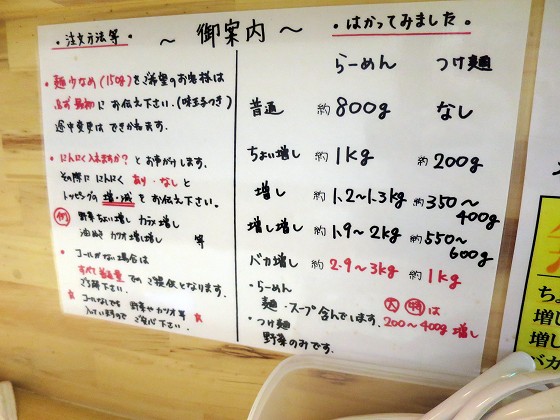 ・注文方法等・
～ 御案内 ～
・麺少なめ(150g)をご希望のお客様は
必ず最初にお伝え下さい。(味玉つき)
途中変更はできかねます。
・にんにく入れますか？とお声がけします。
その際ににんにくあり・なしと
トッピングの増・減をお伝え下さい。
例 野菜ちょい増し カラメ増し
油ぬき カツオ増し増し 等
・コールがない場合は
すべて普通量でのご提供となります。
ご了解下さい。
★コールなしでも野菜やカツオ等
入っていますのでご安心下さい。★
・はかってみました・
らーめん つけ麺
普通 約800g なし
ちょい増し 約1kg 約200g
増し 約1.2～1.3kg 約350～400g
増し増し 約1.9～2kg 約550～600g
バカ増し 約2.9～3kg 約1kg
・らーめん
麺・スープ含んでします。
大 中 は
200～400g増し
・つけ麺
野菜のみです。
ち
増し
増し
バカ